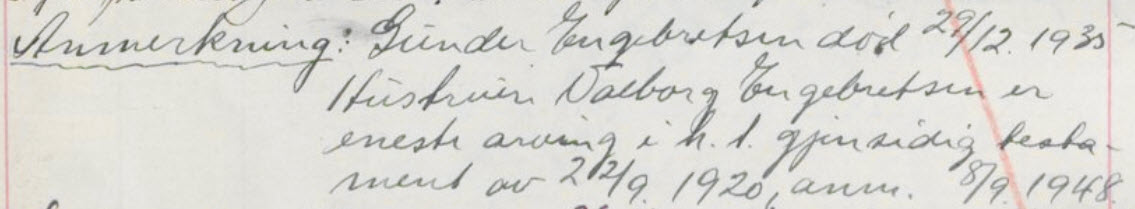 Anmerkning: Gunder Engebretsen død 29/12. 1935
Hustruen Valborg Engebretsen er
eneste arving i h. t. gjensidig testa-
ment av 22/9. 1920, anm. 8/9. 1948.